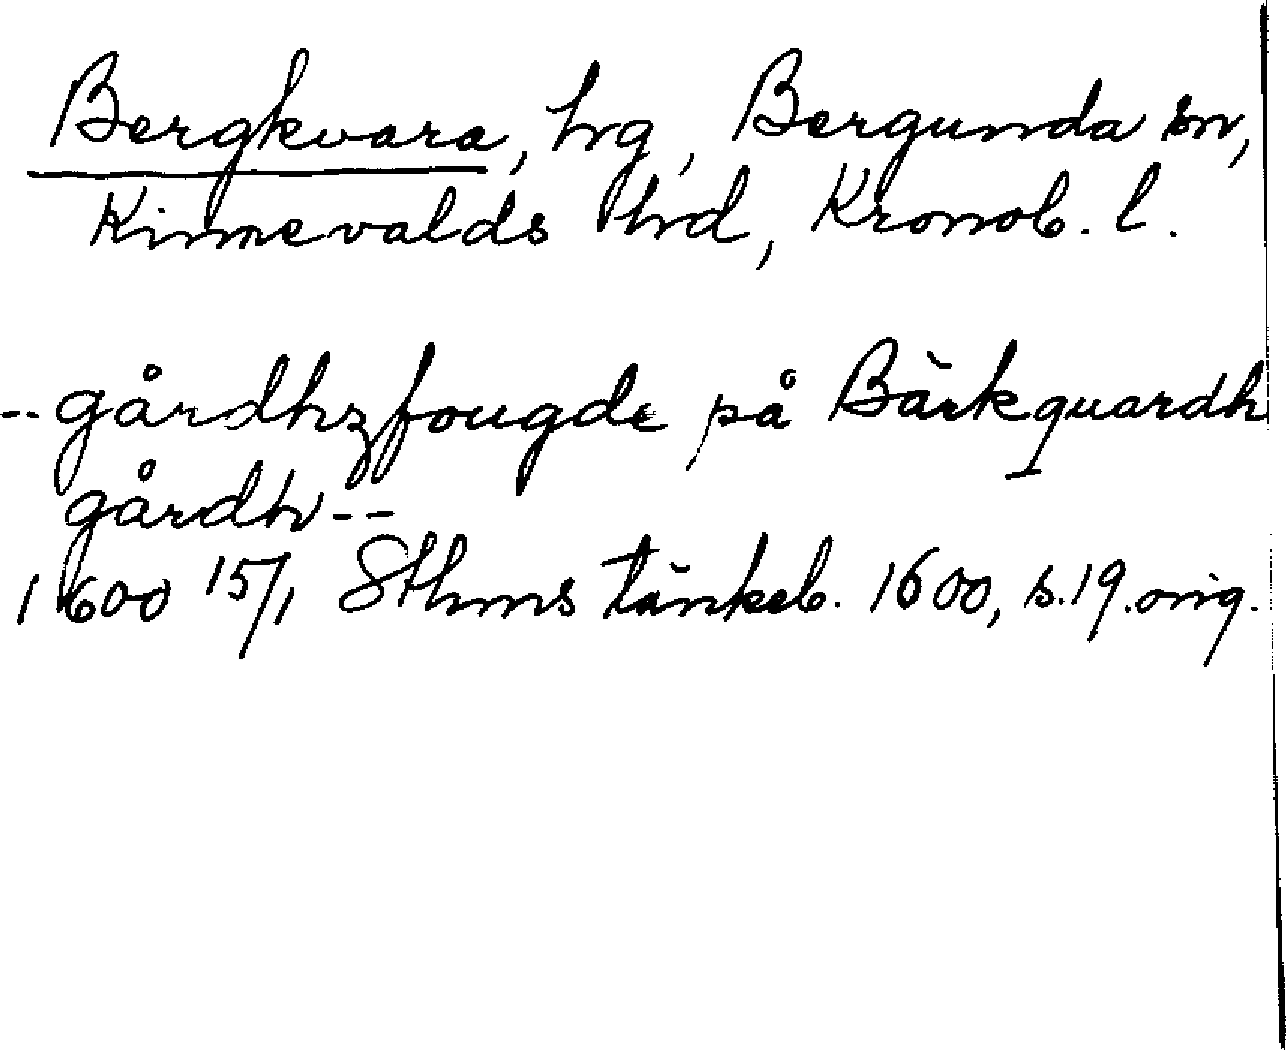 Bergkvara, hrg, Bergunda sn,
Kinnevalds hrd, Kronob. l.
-- gårdhzfougde på Bärkquardh
gårdh --
1600 15/1 Sthms tänkeb. 1600, s. 19. orig.